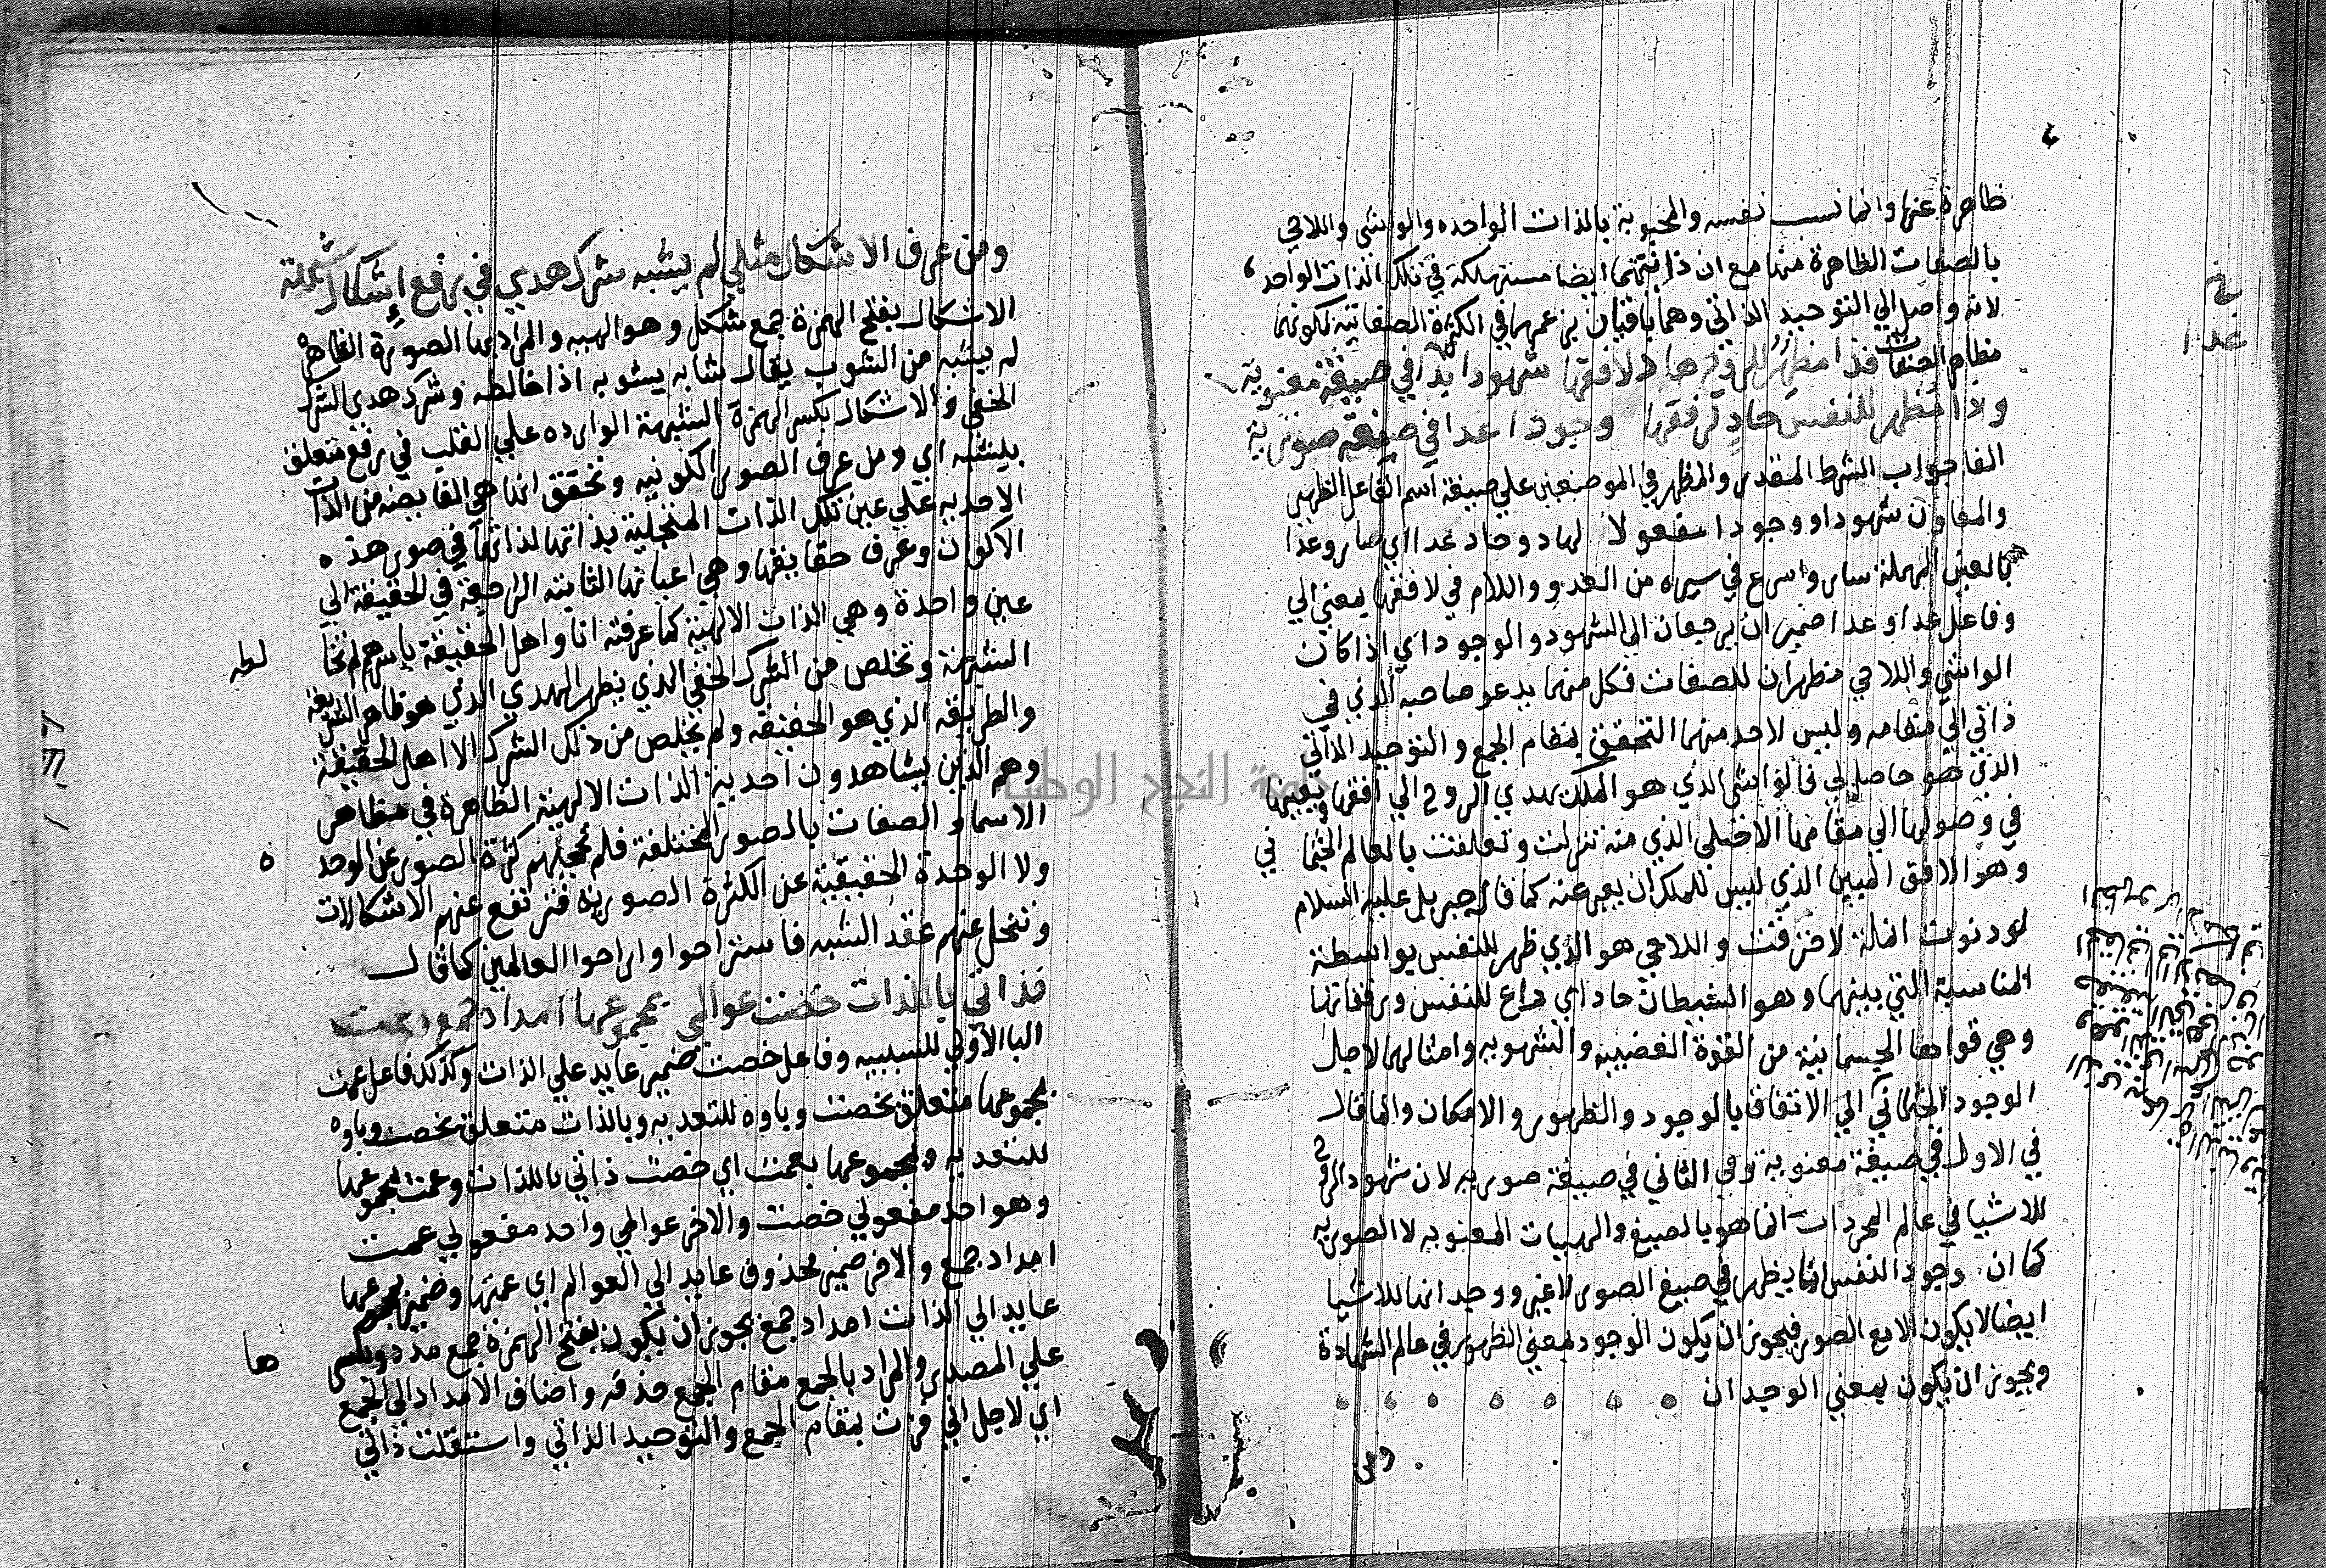 ظاهرة عنها وانما نسب نفسه والمحبوبة بالذات الواحده والواشي واللاحي
بالصفات الظاهرة منها مع ان ذاتيتهما ايضا مستهلكة في تلك الذات الواحد
لانه واصل الي التوحيد الذاتي وهما باقيان بزعمهما في الكثرة الصفاتيه لكونهما
مظاهر الصفات فذا مظهر للروح هاد لافقها شهودا بدا في صيغة معنوية
وذا مظهر للنفس حاد لرفقها وجودا عدا في صيغة صورية
الفا جواب الشرط المقدر والمظهر في الموضعين علي صيغة اسم الفاعل الظهير
والمعاون شهودا ووجودا مفعولا لهاد وحاد غدا اي صار وعدا
بالعين المهملة سار واسرع في سيره من العدو واللام في لافقها بمعني الي
وفاعل غدا وعدا ضميران يرجعان الي الشهود والوجود اي اذا كان
الواشي واللاحي مظهران للصفات فكل منهما يدعو صاحبه الذي في
ذاتي الي مقامه وليس لاحد منهما التحقق بمقام الجمع والتوحيد الذاتي
الذي هو حاصل لي فالواشي الذي هو الملك يهدي الروح الي افقها ويعينها
في وصولها الي مقامها الاصلي الذي منه تنزلت وتعلقت بالعالم الجثما ني
وهو الافق المبين الذي ليس للملك ان يعبر عنه كما قال جبريل عليه السلام
لو دنوت انملة لاحترقت واللاحي هو الذي ظهر للنفس بواسطة
المناسبة التي بينهما وهو الشيطان حاد اي داع للنفس ورفقاتها
وهي قواها الجسمانية من القوة الغضبيه والشهويه وامثالهما لاجل
الوجود الجثماني الي الاتفاق بالوجود والظهور والامكان وانما قال
في الاول في صيغة معنوية وفي الثاني في صيغة صوريه لان شهود الروح
للاشيا في عالم المجردات انما هو بالصيغ والهييات المعنويه لا الصوريه
كما ان وجود النفس انما يظهر في صيغ الصور لا غير ووجدانها للاشيا
ايضا لا يكون الا مع الصور فيجوز ان يكون الوجود بمعني الظهور في عالم الشهادة
ويجوز ان يكون بمعني الوجدان
ومن
ومن عرف الاشكال مثلي لم يشبه شرك هدي في رفع إشكال شبهة
الاشكال بفتح الهمزة جمع شكل وهو الهييه والمراد بها الصورة الظاهرة
لم يشبه من الشوب يقال شابه يشوبه اذا خالطه وشرك هدي الشرك
الخفي والاشكال بكسر الهمزة الشبهة الوارده علي القلب في رفع متعلق
بيشبه اي ومن عرف الصور الكونيه وتحقق انها هي الفايضه من الذات
الاحديه علي عين تلك الذات المتجلية بذاتها لذاتها في صور هذه
الاكوان وعرف حقايقها وهي اعيانها الثابته الراجعة في الحقيقة الي
عين واحدة وهي الذات الالهية كما عرفته انا واهل الحقيقة باسرهم نجا
الشبهة وتخلص من الشرك الخفي الذي يظهر الهدي الذي هو ظاهر الشريعة
والطريقه الذي هو الحقيقه ولم يخلص من ذلك الشرك الا اهل الحقيقة
وهم الذين يشاهدون احدية الذات الالهية الظاهرة في مظاهر
الاسما والصفات بالصور المختلفة فلم تحجبهم كثرة الصور عن الوحد ه
ولا الوحدة الحقيقية عن الكثرة الصوريه فترتفع عنهم الاشكالات
وتنحل عنهم عقد الشبه فاستراحوا واراحوا العالمين كما قال
فذاتي باللذات خصت عوالمي بمجموعها امداد جمع وعمت
البا الاولي للسببيه وفاعل خصت ضمير عايد علي الذات وكذلك فاعل عمت
بمجموعها متعلق بخصت وباوه للتعديه وبالذات متعلق بخصت وباوه
للتعديه وبمجموعها بعمت اي خصت ذاتي باللذات وعمت بمجموعها
وهو احد مفعولي خصت والاخر عوالمي واحد مفعولي عمت
امداد جمع والاخر ضمير محذوف عايد الي العوالم اي عمتها وضمير بمجموعها
عايد الي الذات امداد جمع يجوز ان يكون بفتح الهمزة جمع مدد وبكسر ها
علي المصدر والمراد بالجمع مقام الجمع حذفه واضاف الامداد الي الجمع
اي لاجل اني فزت بمقام الجمع والتوحيد الذاتي واستقلت ذاتي